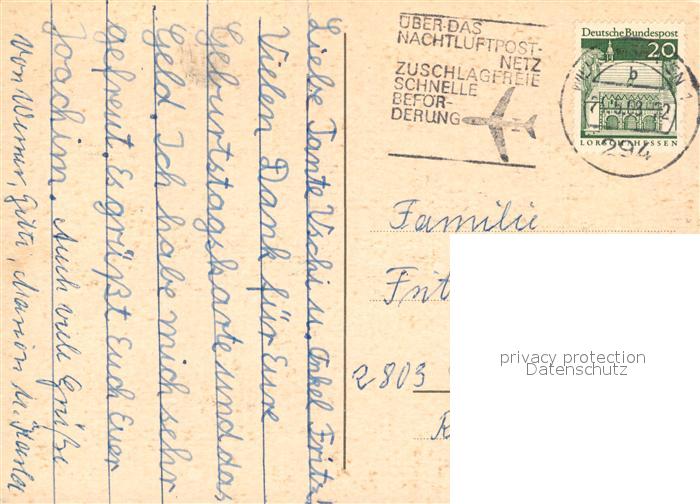 ÜBER·DAS
NACHTLUFTPOST-
NETZ
ZUSCHLAGFREIE
SCHNELLE
BEFÖR-
DERUNG
Deutsche Bundespost
20
LORSCH/HESSEN
b
294
Liebe Tante Vichi u. Onkel Fritz
Vielen Dank für Eure
Geburtstagskarte und das
Geld. Ich habe mich sehr
gefreut. Es grüßt Euch Euer
Joachim. Auch viele Grüße
von Werner, Gitta, Marion u. Karla
Familie
Frit
2803
privacy protection
Datenschutz